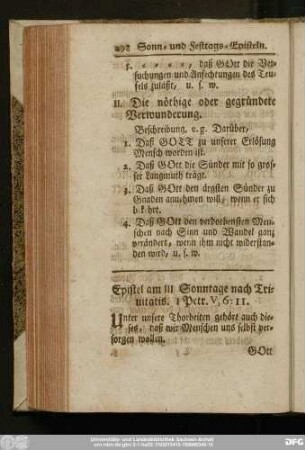 292 Sonn- und Festtags-Episteln.
5. - - - -, daß GOtt die Ver-
suchungen und Anfechtungen des Teu-
fels zuläßt, u. s. w.
II. Die nöthige oder gegründete
Verwunderung.
Beschreibung, e. g. Darüber,
1. Daß GOTT zu unserer Erlösung
Mensch worden ist.
2. Daß GOtt die Sünder mit so gros-
ser Langmuth trägt.
3. Daß GOtt den ärgsten Sünder zu
Gnaden annehmen will, wenn er sich
bekehrt.
4. Daß GOtt den verdorbensten Men-
schen nach Sinn und Wandel ganz
verändert, wenn ihm nicht widerstan-
den wird, u. s. w.
Epistel am III Sonntage nach Tri-
nitatis. 1 Petr. V, 6-11.
Unter unsere Thorheiten gehört auch die-
ses, daß wir Menschen uns selbst ver-
sorgen wollen.
GOtt
Universitäts- und Landesbibliothek Sachsen-Anhalt
DFG